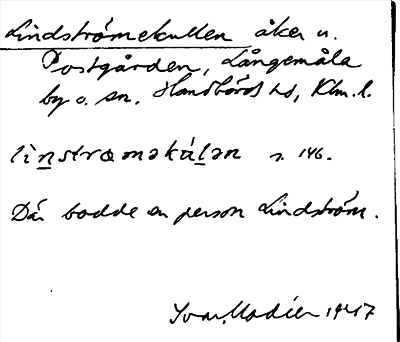 Lindströmekullen åker u.
Postgården, Långemåla
by o. sn. Handbörds hd, Klm. l.
lìnstrœməkúlən s. 146.
Där bodde en person Lindström.
Ivar Modéer 1947